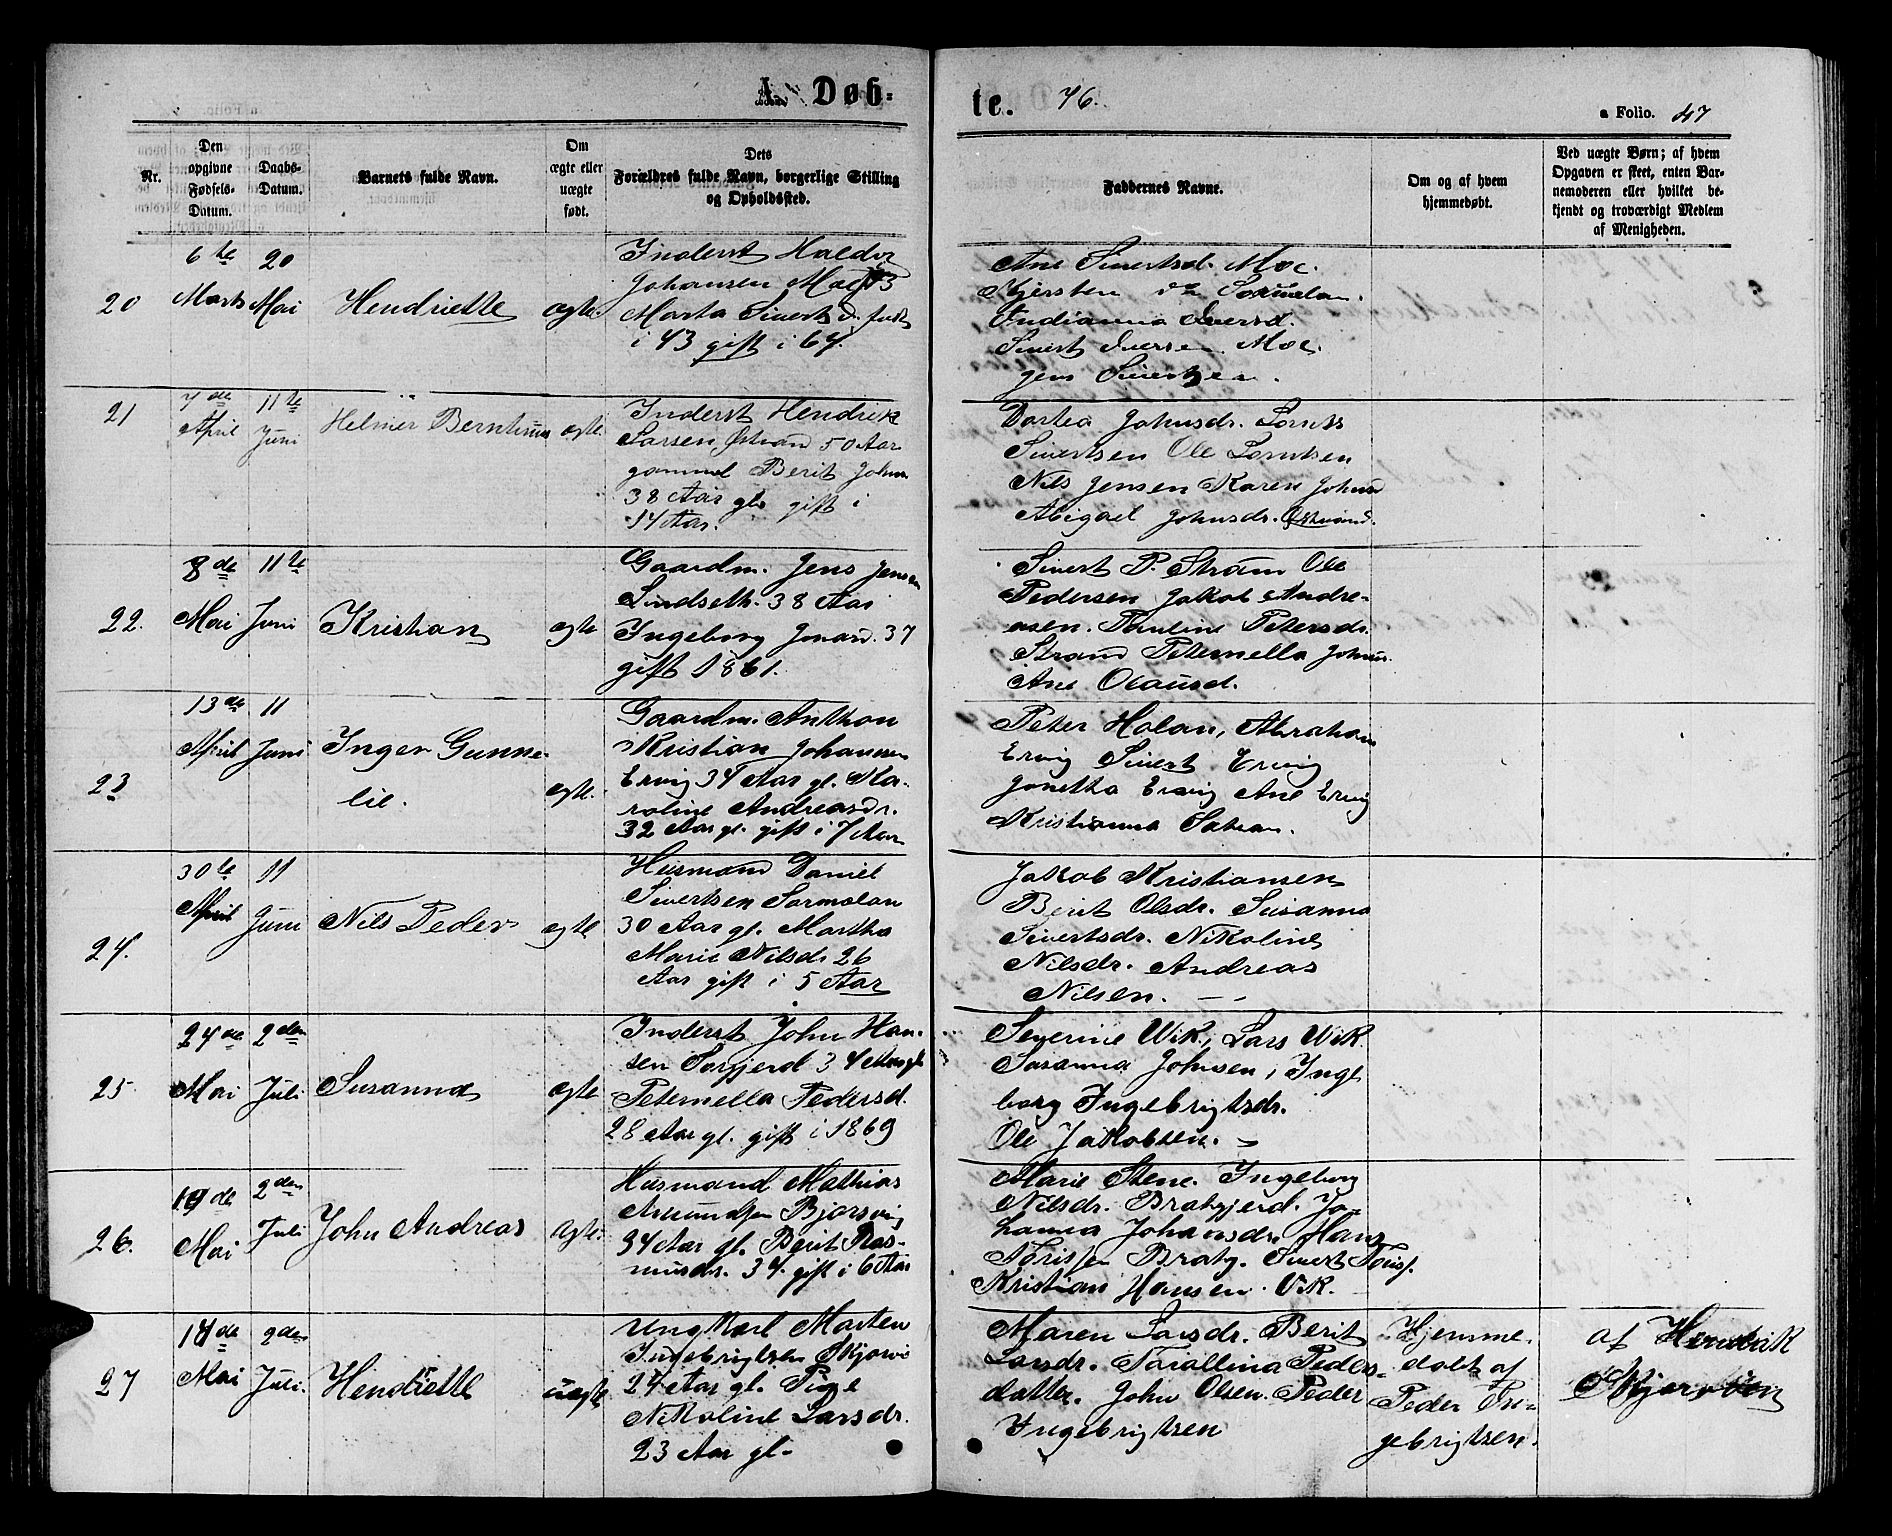 A. Døb-
te. 76.
a Folio. 47
Nr.
Den opgivne Fødsels-Datum.
Daabs-Datum.
Barnets fulde Navn.
Om ægte eller uægte født.
Dets Forældres fulde Navn, borgerlige Stilling og Opholdssted.
Faddernes Navne.
Om og af hvem hjemmedøbt.
Ved uægte Børn; af hvem Opgaven er skeet, enten Barnemoderen eller hvilket bekjendt og troværdigt Medlem af Menigheden.
20
6te Marts
20 Mai
Hendriette
ægte.
Inderst Haldor
Johansen Moe
Marta Sivertsd. født
i 43 gift i 67.
Ane Sivertsd. Moe.
Kjersten
Indianna Iversd.
Sivert Iversen Moe.
Jens Sivertsen.
21
7de April
11te Juni
Helmer
ægte.
Inderst Hendrik
Larsen 50 Aar
gammel Berit Johns
38 Aar gl. gift i
14 Aar.
Dortea Johnsdr. Lornts
Sivertsen Ole Lorntsen
Nils Jensen Karen Johnsd
Abigael Johnsdr.
22.
8de Mai
11te Juni
Kristian
ægte
Gaardm. Jens Jensen
Lindseth. 38 Aar
Ingeborg Jonasd. 37
gift 1861.
Sivert P. Strøm Ole
Pedersen Jakob Andre-
asen. Pauline Petersdr.
Strand Peternella Johns
Ane Olausd.
23
13de April
11 Juni
Inger Gunne-
lie.
ægte.
Gaardm. Anthon
Kristian Johansen
Ervig 34 Aar gl. Ka-
roline Andreasdr.
32 Aar gl. gift i 7 Aar
Peter Holan, Abraham
Ervig Sivert Ervig
Jonetha Ervig Ane Ervig
Kristianna
24.
30te April
11 Juni
Nils Peder
ægte
Husmand Daniel
Sivertsen Sørmolan
30 Aar gl. Martha
Marie Nilsdr 26
Aar gift i 5 Aar
Jakob Kristiansen
Berit Olsdr. Susanna
Sivertsdr. Nikoline
Nilsdr. Andreas
Nilsen.
25
24de Mai
2den Juli
Susanna
ægte
Inderst John Han-
sen 34 Aar gl
Peternella Pedersd.
28 Aar gl. gift i 1869
Severine Wik, Lars Wik
Susanna Johnsen, Inge
borg Ingebrigtsdr.
Ole Jakobsen.
26.
19de Mai
2den Juli
John Andreas
ægte.
Husmand Mathias
Amundsen
34 Aar gl. Berit Ras-
musdr. 34. gift i 6 Aar
Marie Stene. Ingeborg
Nilsdr. Bratgjerd. Jo-
hanna Johansdr. Hans
Kristian Hansen. Vik.
27
Mai
2den Juli.
Hendriette
uægte
Ungkarl Morten
Ingebrigtsen
24 Aar gl. Pige
Nikoline Larsdr.
23 Aar gl.
Maren Larsdr. Berit
Larsdr. Peders-
datter. John Olsen. Peder
Ingebrigtsen
Hjemme-
døbt af
Peder In-
gebrigtsen.
af Hendrik